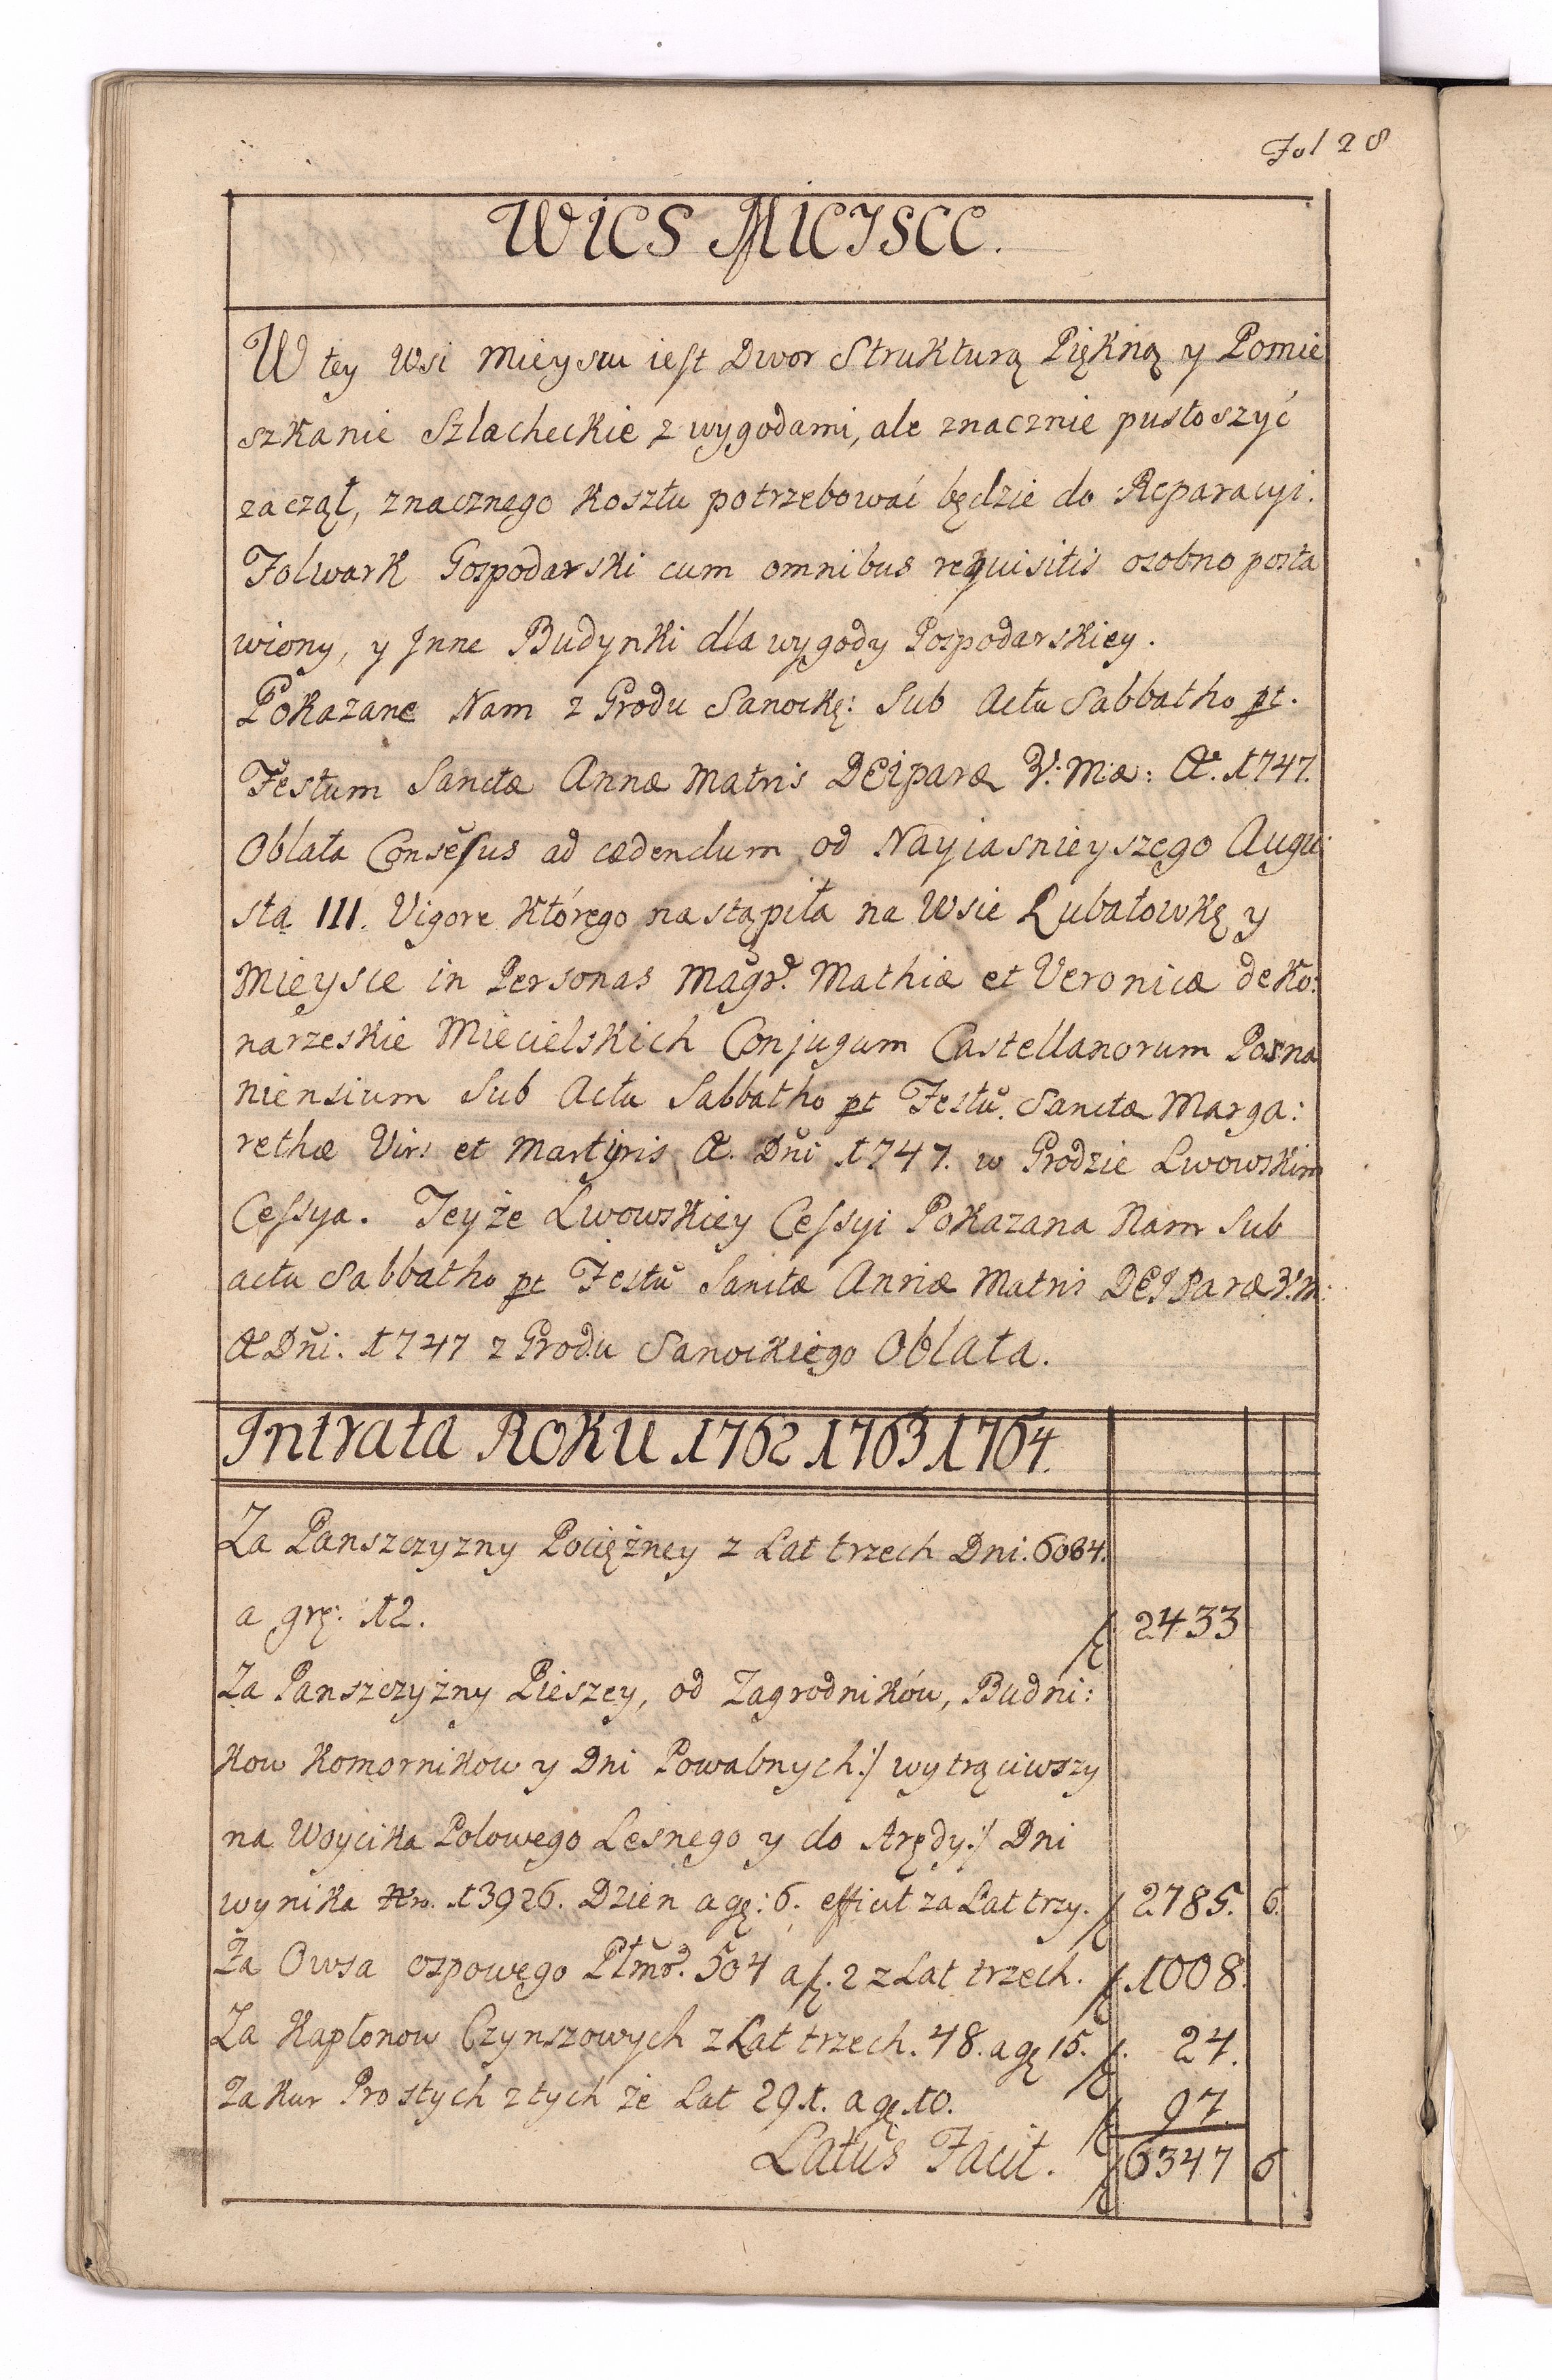 Fol 28
WIES MIEJSCE.
W tey Wsi Mieyscu iest Dwor Strukturą Piękną y Pomie
szkanie Szlacheckie z wygodami, ale znacznie pustoszyć
zaczął, znacznego kosztu potrzebować będzie do Reparacyi.
Folwark Gospodarski cum omnibus requisitis osobno posta
wiony, y Inne Budynki dla wygody Gospodarskiey.
Pokazane Nam z Grodu Sanockę: Sub Actu Sabbatho pt.
Festum Sanctæ Annæ Matris DEiparæ V: M:æ: A̅o. 1747.
Oblata Consēsus ad cædendum od Nayiasnieyszego Augu
sta III. Vigore którego nastąpiła na Wsie Lubatowkę y
Mieysce in Personas Magr. Mathiæ et Veronicæ de Ko:
narzeskie Mięcielskich Conjugum Castellanorum Posna
niensium Sub Actu Sabbatho pt Festū. Sanctæ Marga:
rethæ Vir: et Martyris A. Dn̄i 1747. w Grodzie Lwowskim
Cessya. Teyże Lwowskiey Cessyi Pokazana Nam Sub
actu Sabbatho pt Festū Sanctæ Annæ Matris DEIParæ V: M:
A Dn̄i. 1747 z Grodu Sanockiego Oblata.
Intrata Roku 1762 1763 1764.
Za Panszczyzny Pociężney z Lat trzech Dni. 6084.
a grę: 12. f 2433
Za Panszczyzny Pieszey, od Zagrodników, Budni:
kow Komornikow y Dni Powabnych :/ wytrąciwszy
na Woycika Polowego Lesnego y do Arędy :/ Dni
wynika Nro. 13926. Dzien a gę: 6. efficit za Lat trzy. f 2785. 6.
Za Owsa ospowego Płmr. 504 a f. 2 z Lat trzech. f. 1008.
Za Kapłonow Czynszowych z Lat trzech. 48. a gę 15. f. 24.
Za kur Prostych z tych że Lat 291. a gę 10. f 97.
Latus Facit. f 6347 6